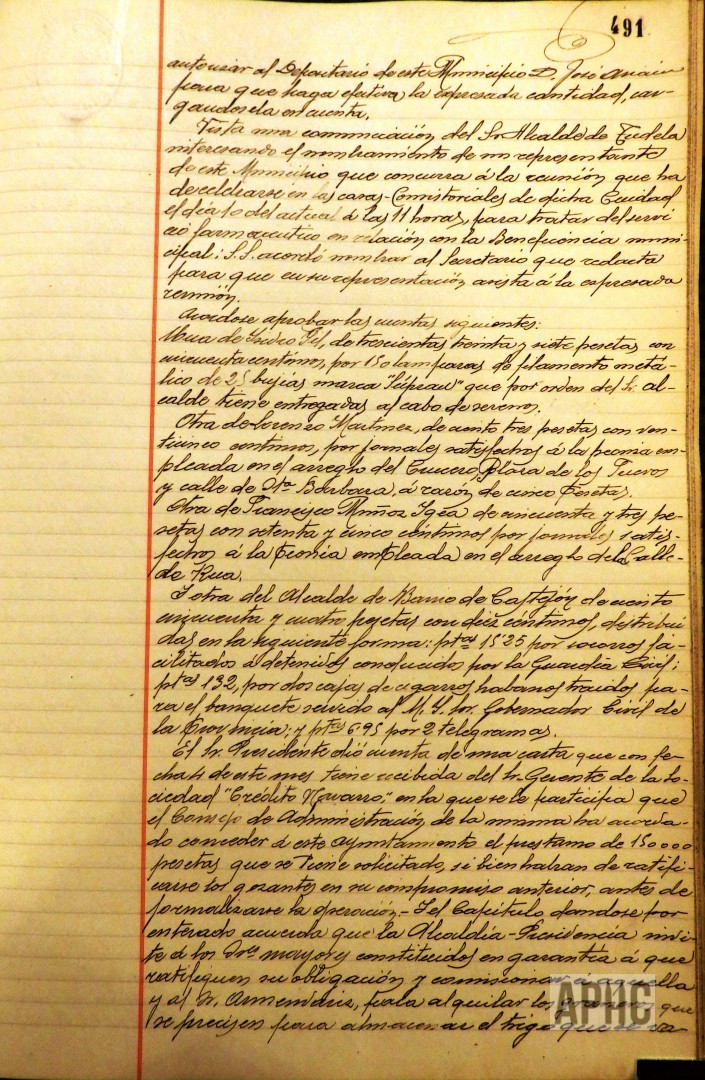 491
autorizar al Depositario de este Municipio D. José
para que haga efectiva la expresada cantidad, car-
gandosela en cuenta.
Vista una comunicación del Sr. Alcalde de Tudela
interesando el nombramiento de un representante
de este Municipio que concurra á la reunión que ha
de celebrarse en las casas-Consistoriales de dicha Ciudad
el día 10 del actual á las 11 horas, para tratar del servi
cio farmaceutico en relación con la Beneficencia muni-
cipal: S.S. acordó nombrar al Secretario que redacta
para que en su representación asista á la expresada
reunión.
Acordose aprobar las cuentas siguientes:
Una de Isidro Gil, de trescientas treinta y siete pesetas con
cincuenta centimos, por 150 lamparas de filamento metá-
lico de 25 bujias marca que por orden del Sr. al-
calde tiene entregadas al cabo de serenos.
Otra de Lorenzo Martinez, de ciento tres pesetas con vein-
ticinco centimos, por jornales satisfechos á la peonia em-
pleada en el arreglo del Crucero, Plaza de los Fueros
y calle de Sta. Barbara, á razón de cinco Pesetas.
Otra de Francisco Muñoz Igea de cincuenta y tres pe-
setas con setenta y cinco céntimos por jornales satis-
fechos á la Peonía empleada en el arreglo de la Calle
de Rua.
Y otra del Alcalde de Barrio de Castejón de ciento
cincuenta y cuatro pesetas con diez céntimos, distribui
das en la siguiente forma: ptas 15'25 por socorros fa-
cilitados á detenidos conducidos por la Guardia Civil;
ptas 132, por dos cajas de cigarros habanos traidos pa-
ra el banquete servido al M. Y. Sr. Gobernador Civil de
la Provincia; y ptas 6'95 por 2 telegramas.
El Sr. Presidente dió cuenta de una carta que con fe-
cha 4 de este mes tiene recibida del Sr. Gerente de la So-
ciedad "Crédito Navarro", en la que se le participa que
el Consejo de Administración de la misma ha acorda-
do conceder á este ayuntamiento el prestamo de 150000
pesetas que se tiene solicitado, si bien habran de ratifi-
carse los garantes en su compromiso anterior, antes de
formalizarse la operación.- Y el Capitulo, dandose por
enterado acuerda que la Alcaldía-Presidencia invi-
te á los Sres mayores constituidos en garantía á que
ratifiquen su obligación y comisiona
y al Sr. Armendariz, para alquilar los graneros que
se precisen para almacenar el trigo que se va-
APHC